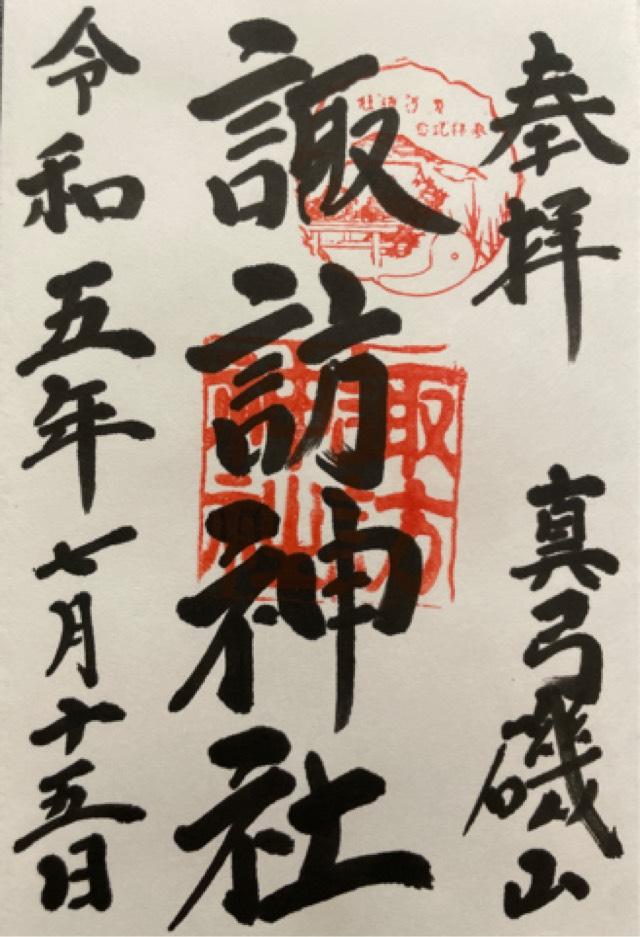 奉拝
真弓磯山
諏訪神社
諏訪
神社
令和五年七月十五日